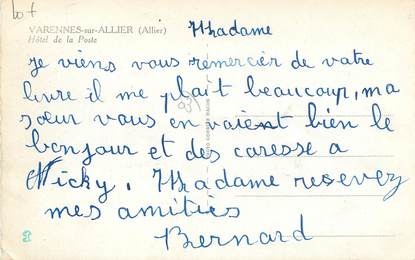 lot
VARENNES-sur-ALLIER (Allier)
Hôtel de la Poste
Madame
Je viens vous remercier de votre
livre il me plait beaucoup, ma
sœur vous envaient bien le
bonjour et des caresse a
Nicky. Madame resevez
mes amitiés
Bernard